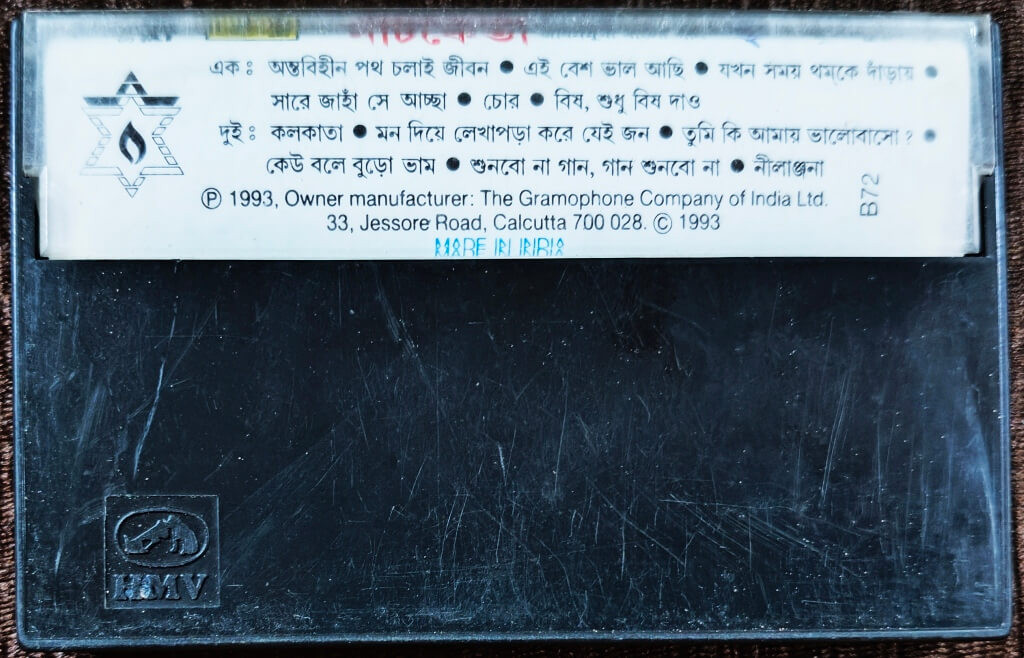 নচিকেতা
এক : অন্তবিহীন পথ চলাই জীবন ● এই বেশ ভাল আছি ● যখন সময় থম্‌কে দাঁড়ায় ●
সারে জাহাঁ সে আচ্ছা ● চোর ● বিষ, শুধু বিষ দাও
দুই : কলকাতা ● মন দিয়ে লেখাপড়া করে যেই জন ● তুমি কি আমায় ভালোবাসো ? ●
কেউ বলে বুড়ো ভাম ● শুনবো না গান, গান শুনবো না ● নীলাঞ্জনা
Ⓟ 1993, Owner manufacturer: The Gramophone Company of India Ltd.
33, Jessore Road, Calcutta 700 028. © 1993
B72
MADE IN INDIA
HMV